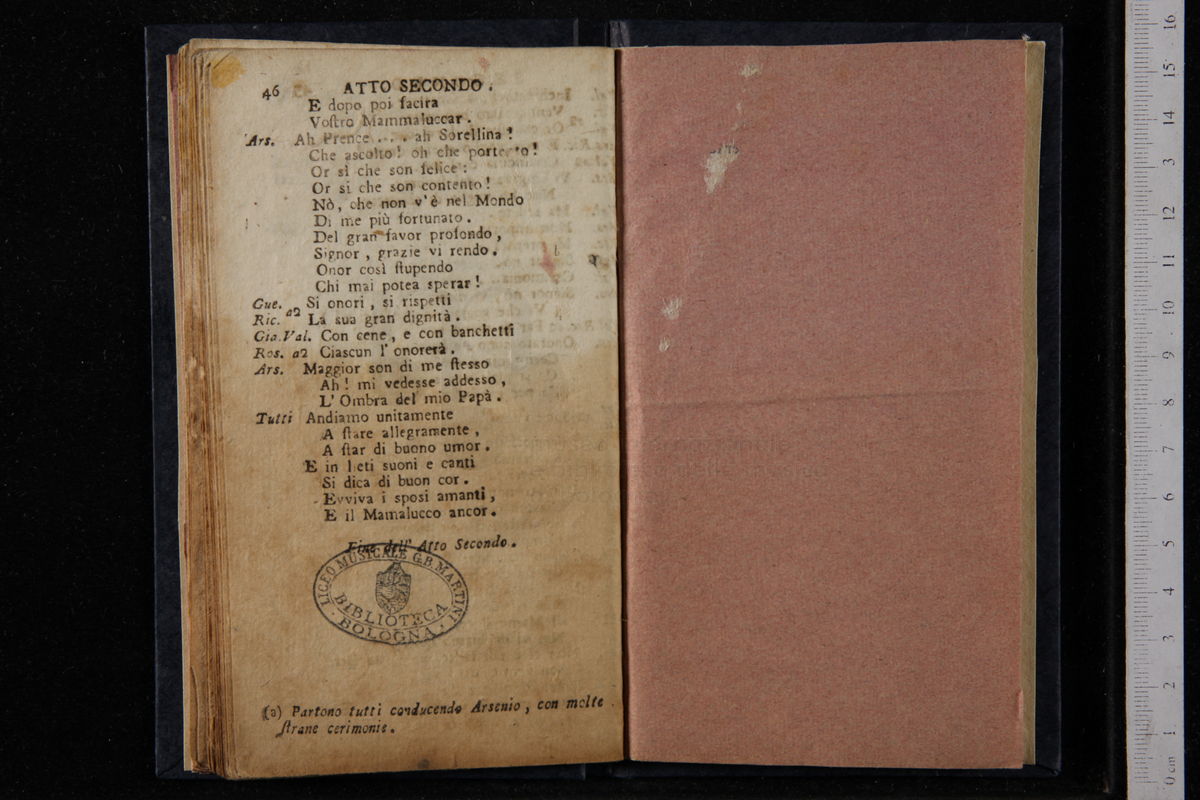 46 ATTO SECONDO.
E dopo poi facita
Voſtro Mammaluccar.
Ars. Ah Prence . . . ah Sorellina!
Che aſcolto! oh che portento!
Or sì che son felice:
Or si che son contento!
Nò, che non v'è nel Mondo
Di me più fortunato.
Del gran favor profondo,
Signor, grazie vi rendo.
Onor così ſtupendo
Chi mai potea sperar!
Gue. Si onori, si rispetti
Ric. a2 La sua gran dignità.
Gia. Val. Con cene, e con banchetti
Ros. a2 Ciascun l' onorerà.
Ars. Maggior son di me ſteſso
Ah! mi vedesse addesso,
L' Ombra del mio Papà.
Tutti Andiamo unitamente
A ſtare allegramente,
A ſtar di buono umor.
E in lieti suoni e canti
Si dica di buon cor.
Evviva i sposi amanti,
E il Mamalucco ancor.
Fine dell' Atto Secondo.
LICEO MUSICALE G.B. MARTINI
BIBLIOTECA
· BOLOGNA ·
(a) Partono tutti conducendo Arsenio, con molte
ſtrane cerimonie.
16
15
14
13
12
11
10
9
8
7
6
5
4
3
2
1
0 cm